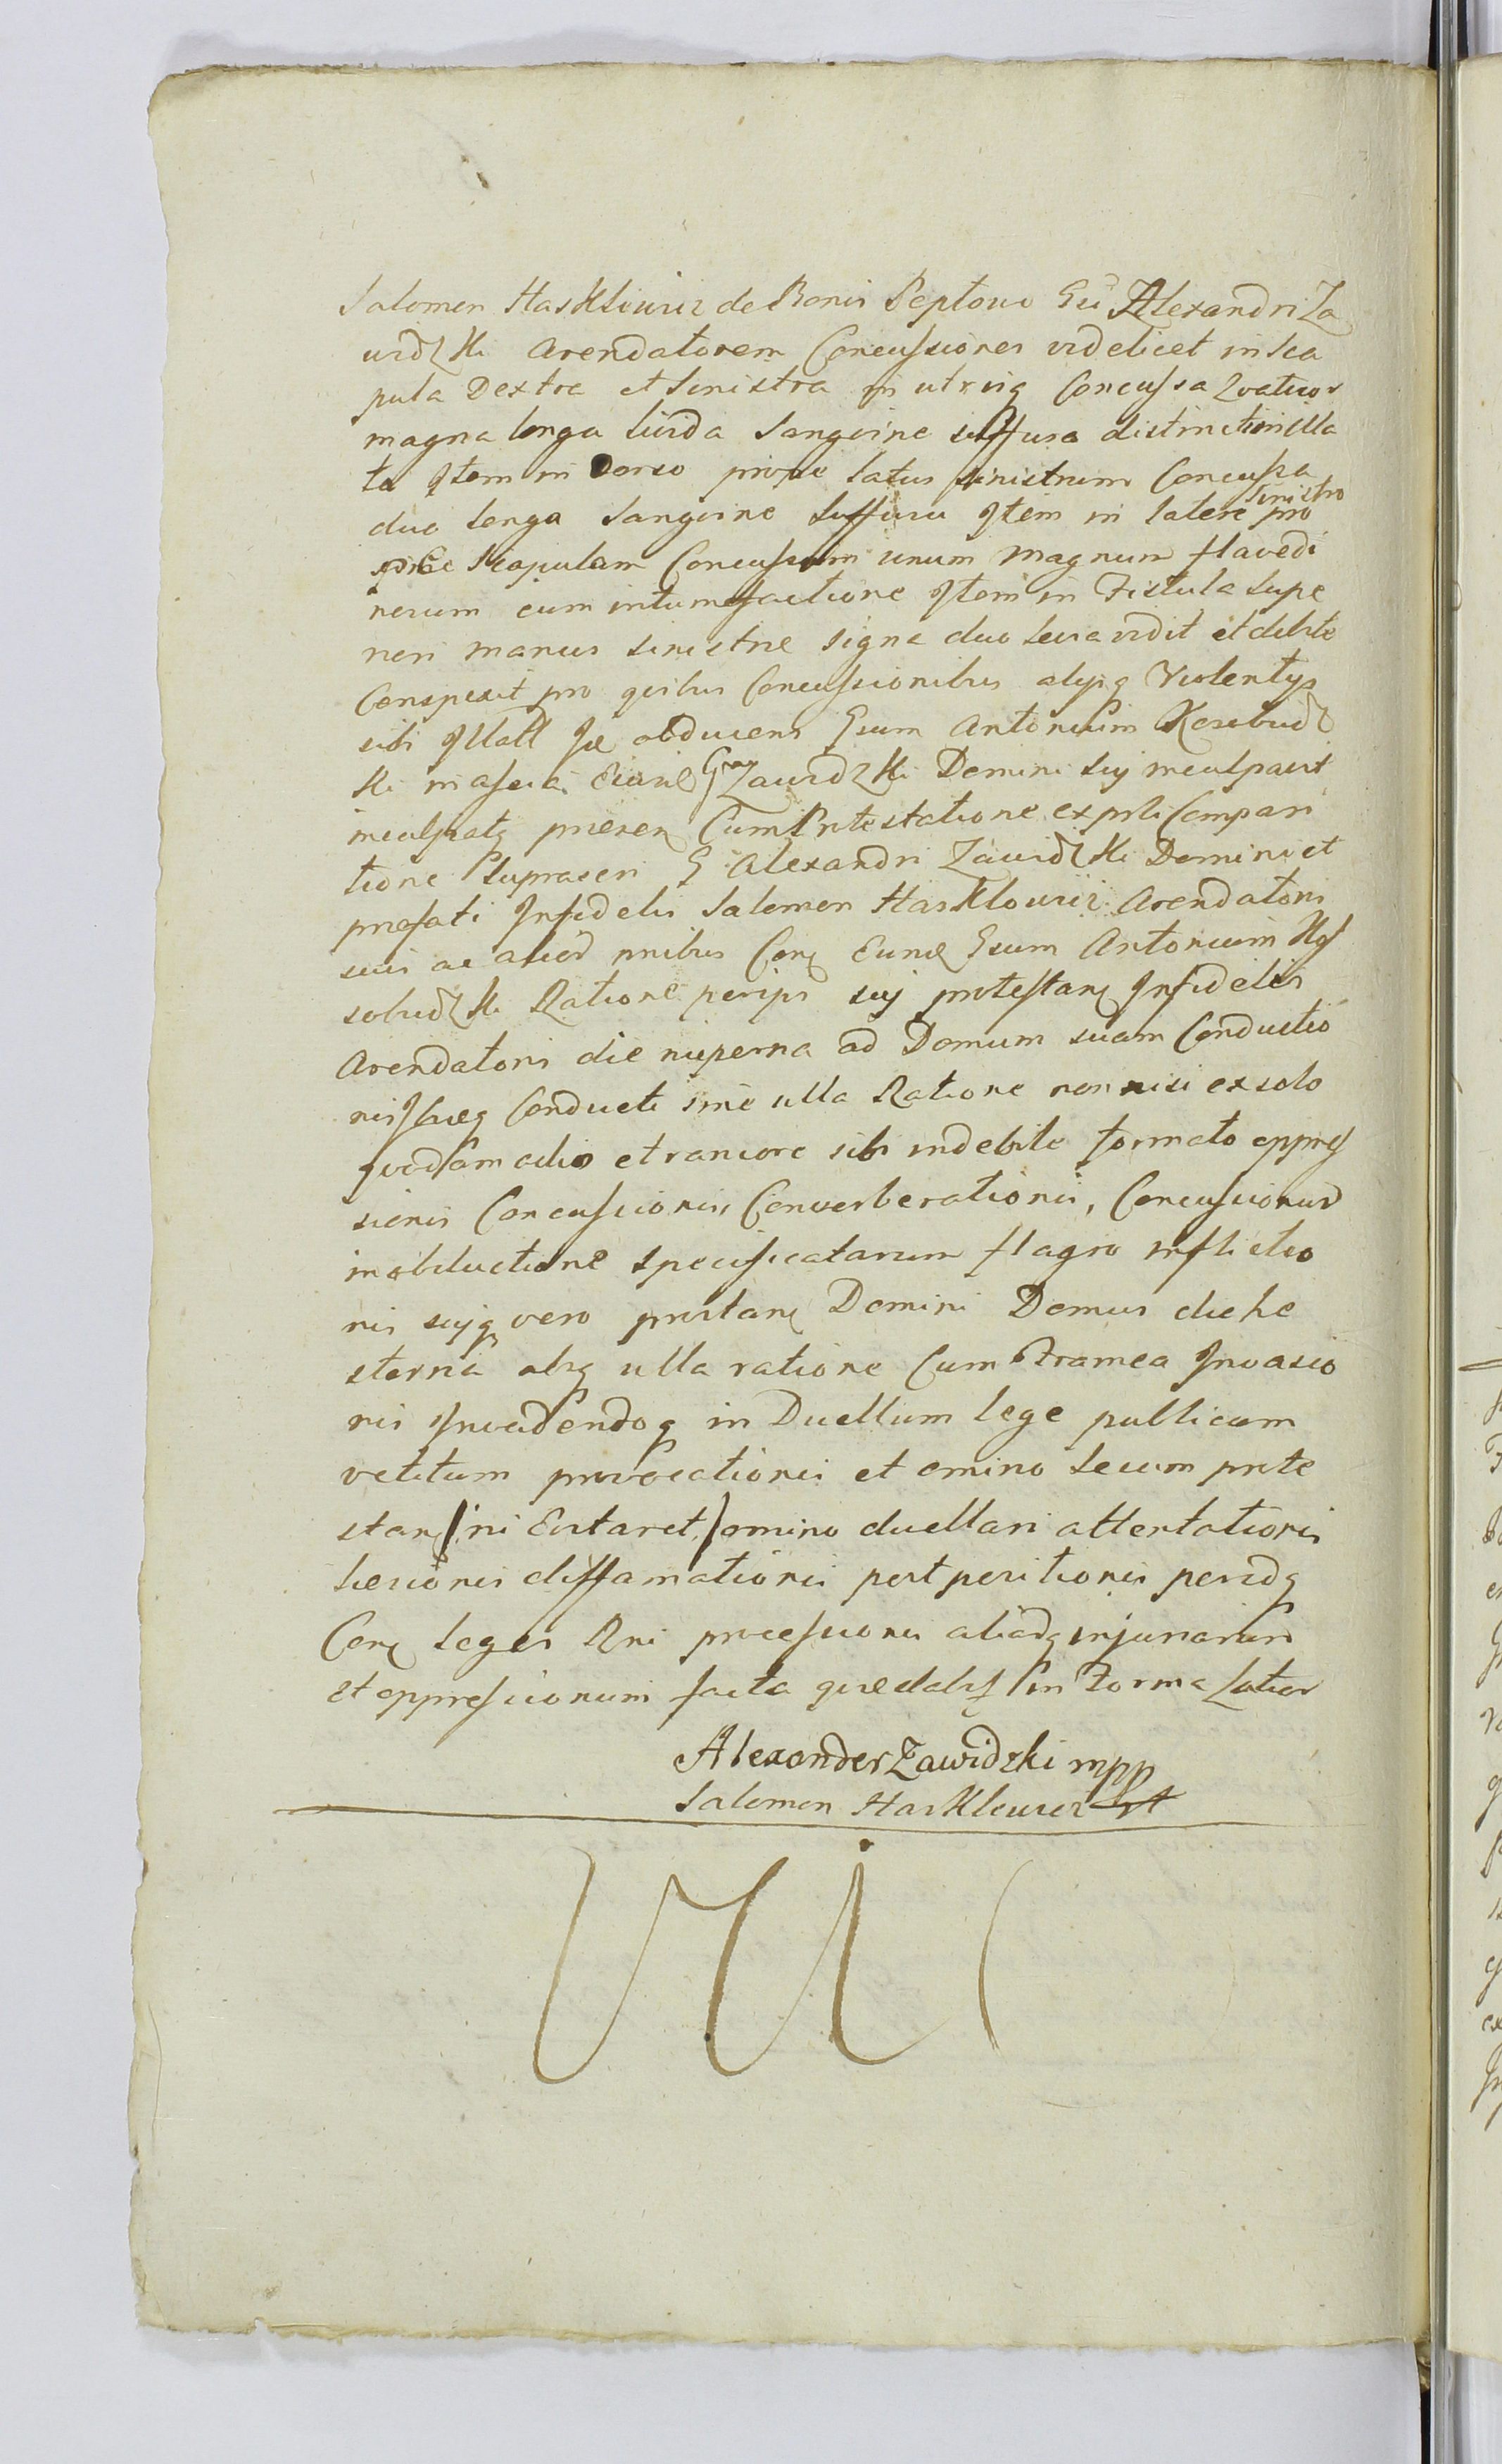 Salomon Hasklowicz de Bonis Peptowo Gsi Alexandri Za
widzki Arendatorem Concussiones videlicet in sca
pula Dextra et sinistra in utrisq Concussa Quatuor
magna longa livida Sangvine suffusa distinctim illa
ta Item in Dorso prope latus sinistrum Concussa
duo longa Sangvine suffusa Item in latere sinistro pro
pe Scapulam Concussum unum magnum flavedi
neum cum intumefactione Item in Fistula supe
riori manus sinistræ signa duo livia vidit et debite
Conspexit pro quibus Concussionibus alysq Violentys
sibi Illatt se obducens Gsum Antonium
ki Zawidzki Domini suy inculpavit
inculpatq præsen Cum Protestatione ex pśti Compari
tione Suprascri G Alexandri Zawidzki Domini et
præfati Infidelis Salomon Hasklowicz Arendatoris
sui ac alior omnibus Conq Eund Gsum Antonium
Ratione per ips suy protestanq Infidelis
Arendatoris die nuperna ad Domum suam Conductio
nis Conducti sine ulla Ratione non nisi ex solo
quodam odio et rancore sibi indebite formato oppres
sionis Concussionis, Converberationis, Concussionum
in obductione specificatarum flagro inflictio
nis suyq vero protanq Domini Domus die he
sterna absq ulla ratione Cum Framea Invasio
nis Invadendoq in Duellum lege publicum
vetitum provocationis et omnino secum prote
stanq /: ni Evitaret :/ omnino duellari attentationis
Læsionis diffamationis postpositionis perindq
Conq leges Rni processionis aliarq injuriarum
et oppressionum facta quædebs in Forma Latior
Alexander Zawidzki mpp
Salomon Hasklowicz